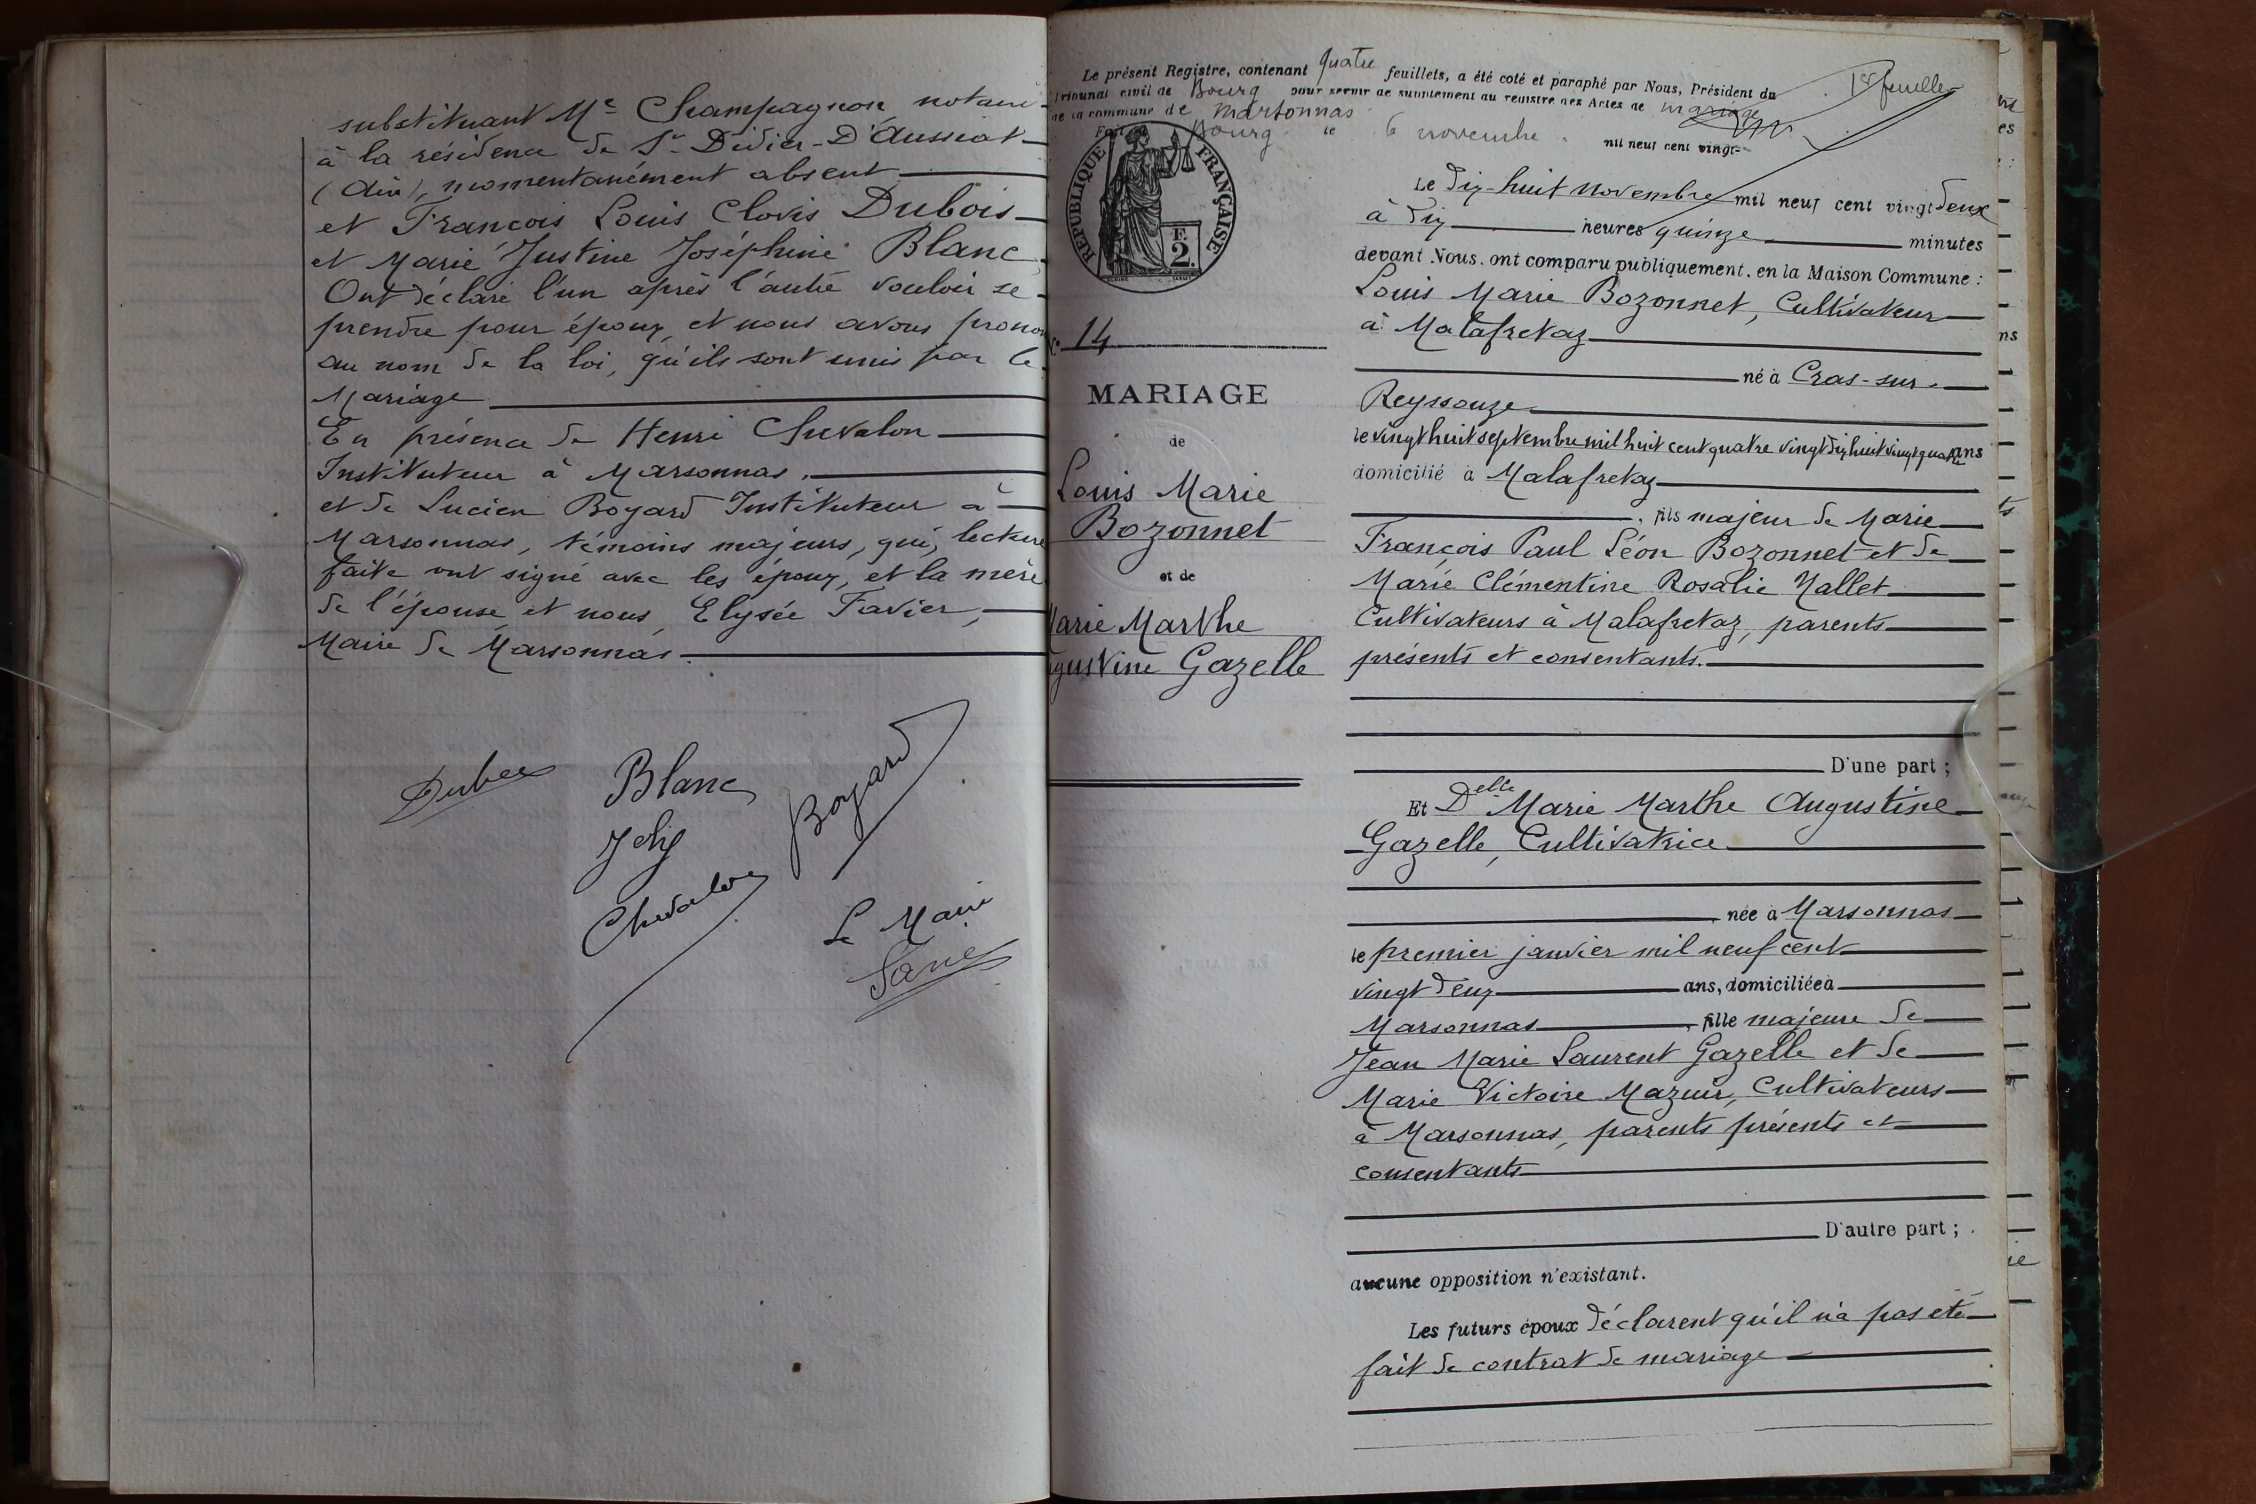 substituant Me Champagnon notaire
à la résidence de St Didier-D'Aussiat
(Ain), momentanément absent
et François Louis Clovis Dubois
et Marie Justine Joséphine Blanc
Ont déclaré l'un après l'autre vouloir se
prendre pour époux, et nous avons prono
au nom de la loi, qu'ils sont unis par le
Mariage
En présence de Henri Chevalon
Instituteur à Marsonnas.
et de Lucien Boyard Instituteur à
Marsonnas, témoins majeurs, qui, lecture
faite ont signé avec les époux, et la mère
de l'épouse, et nous, Elysée Favier,
Maire de Marsonnas.
Blanc
Boyard
Chevalon
Le Maire
Le présent Registre, contenant quatre feuillets, a été coté et paraphé par Nous, Président du
Tribunal civil de Bourg pour servir de supplément au registre des Actes de mariage
de la commune de Marsonnas
Fait à Bourg le 6 novembre mil neuf cent vingt-
1er feuillet
REPUBLIQUE FRANÇAISE
F.
2.
N° 14
MARIAGE
de
Louis Marie
Bozonnet
et de
Marie Marthe
gustine Gazelle
Le Dix-huit Novembre mil neuf cent vingt deux
à Dix heures quinze minutes
devant Nous, ont comparu publiquement, en la Maison Commune :
Louis Marie Bozonnet, Cultivateur
à Malafretaz
né à Cras-sur-
Reyssouze
le vingt huit septembre mil huit cent quatre vingt dix huit vingt quatre ans
domicilié à Malafretaz
, fils majeur de Marie
François Paul Léon Bozonnet et de
Marie Clémentine Rosalie Nallet
Cultivateurs à Malafretaz, parents
présents et consentants.
D'une part ;
Et Delle Marie Marthe Augustine
Gazelle, Cultivatrice
, née à Marsonnas
le premier janvier mil neuf cent
vingt deux ans, domiciliée à
Marsonnas, fille majeure de
Jean Marie Laurent Gazelle et de
Marie Victoire Mazuir, Cultivateurs
à Marsonnas, parents présents et
consentants
D'autre part ;
aucune opposition n'existant.
Les futurs époux déclarent qu'il n'a pas été
fait de contrat de mariage